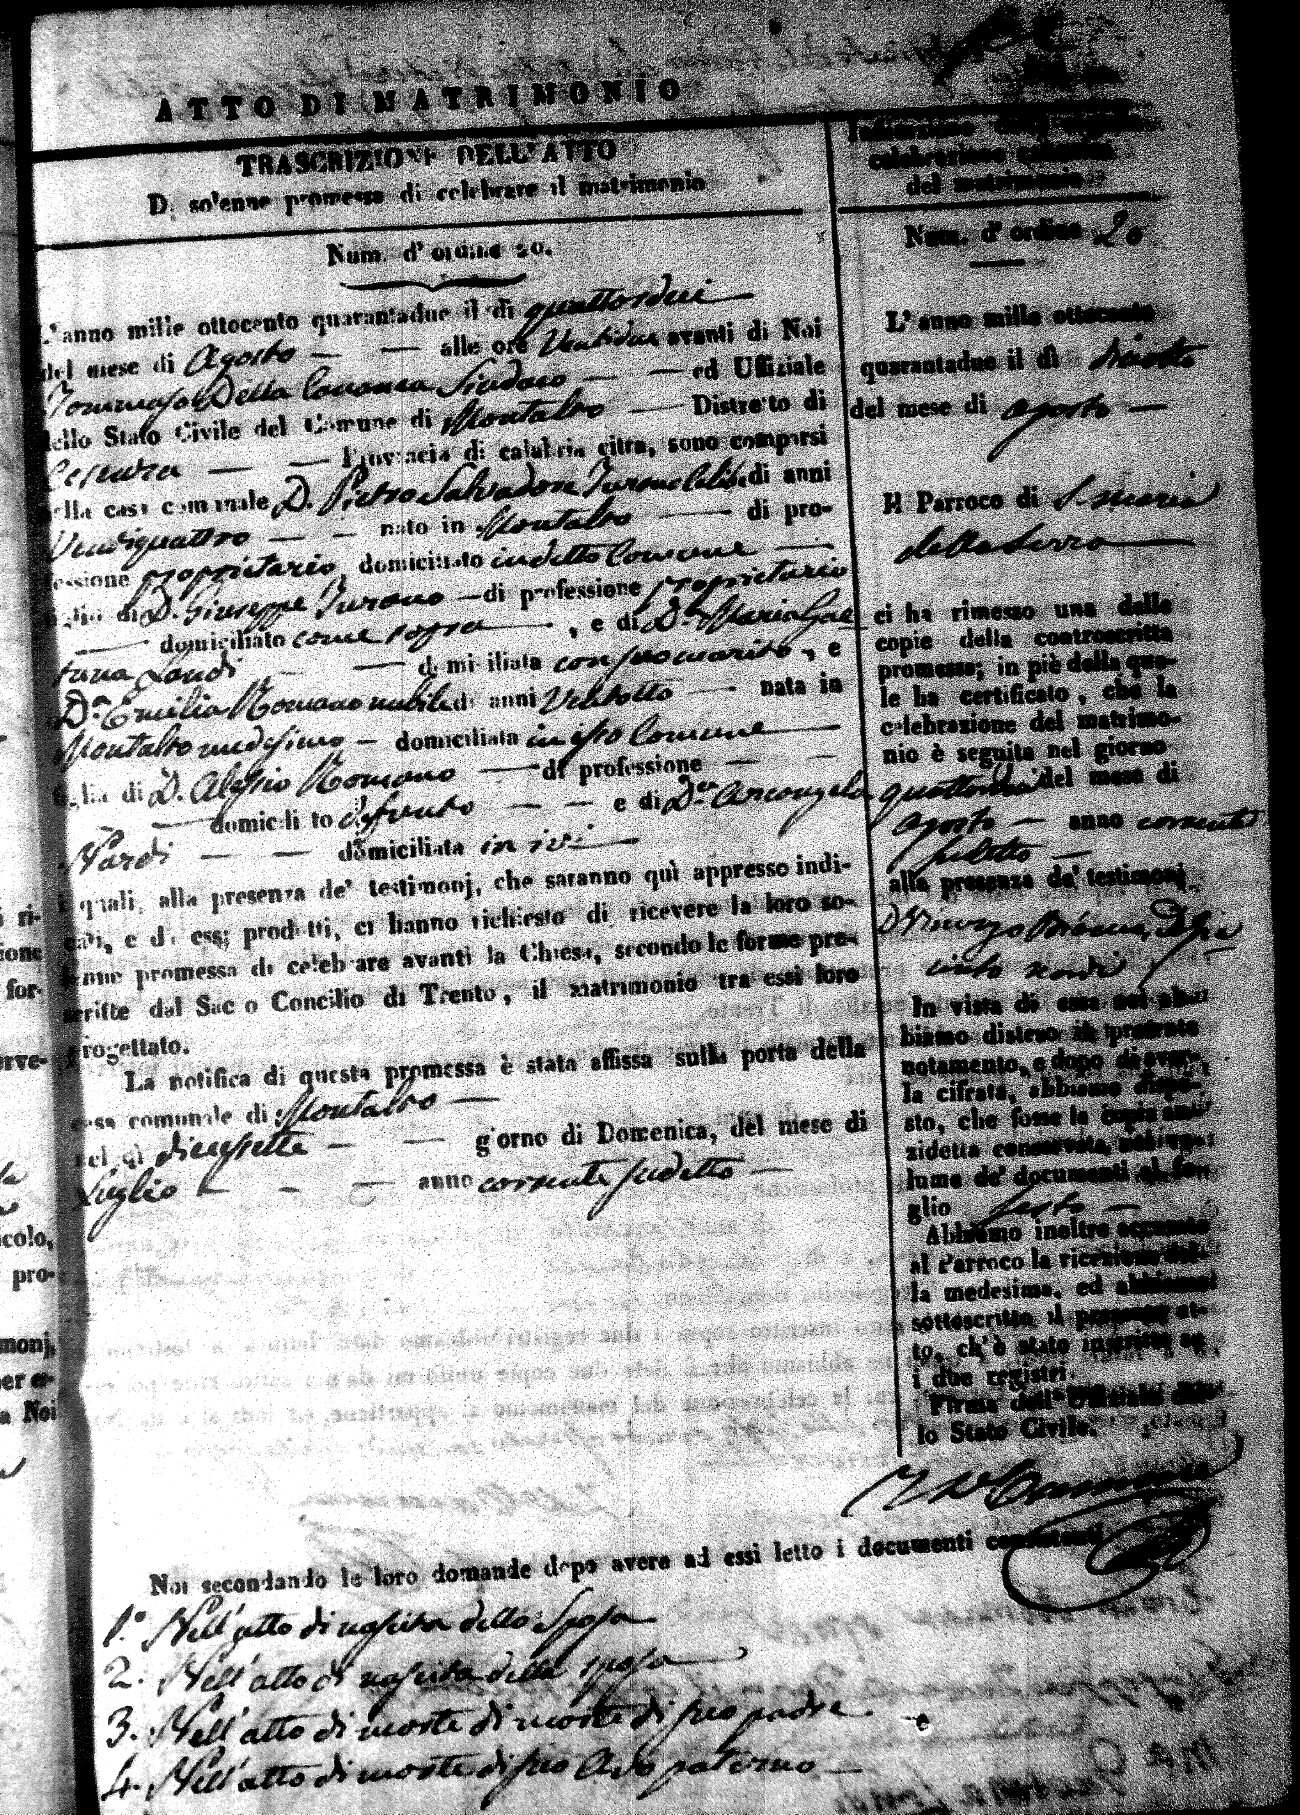 ATTO DI MATRIMONIO
TRASCRIZIONE DELL'ATTO
Di solenne promessa di celebrare il matrimonio
Num. d'ordine 20.
L'anno mille ottocento quarantadue il dì quattordici
del mese di Agosto alle ore Ventidue avanti di Noi
Tommaso Della Sindaco ed Uffiziale
dello Stato Civile del Comune di Montalto Distretto di
Cosenza Provincia di calabria citra, sono comparsi
nella casa comunale D. Pietro Salvadore Turano celibe di anni
Ventiquattro nato in Montalto di pro-
fessione proprietario domiciliato in detto Comune
figlio di D. Giuseppe Turano di professione proprietario
domiciliato come sopra, e di D.a Maria Gae
tana Landi domiciliata con suo marito, e
D.a Emilia Romano nubile di anni Ventotto nata in
Montalto medesimo domiciliata in esso Comune
figlia di D. Alessio Romano di professione
domiciliato defunto e di D.a Arcangela
Nardi domiciliata in ivi
i quali, alla presenza de' testimonj, che saranno quì appresso indi-
cati, e da essi prodotti, ci hanno richiesto di ricevere la loro so-
lenne promessa di celebrare avanti la Chiesa, secondo le forme pre-
scritte dal Sacro Concilio di Trento, il matrimonio tra essi loro
progettato.
La notifica di questa promessa è stata affissa sulla porta della
casa comunale di Montalto
nel dì diciassette giorno di Domenica, del mese di
Luglio anno corrente sudetto
Indicazione della
celebrazione
del matrimonio
Num. d'ordine 20
L'anno mille ottocento
quarantadue il dì diciotto
del mese di agosto
Il Parroco di S. Maria
della Serra
ci ha rimesso una delle
copie della controscritta
promessa; in piè della qua-
le ha certificato, che la
celebrazione del matrimo-
nio è seguita nel giorno
quattordici del mese di
agosto anno corrente
sudetto
alla presenza de' testimonj
D. Vincenzo
Nardi
In vista di essa noi ab-
biamo disteso il presente
notamento, e dopo di aver-
la cifrata, abbiamo dispo-
sto, che fosse la copia an-
zidetta conservata nel vo-
lume de' documenti al fo-
glio sesto
Abbiamo inoltre accusato
al Parroco la ricezione del-
la medesima, ed abbiamo
sottoscritto il presente at-
to, ch'è stato inscritto su
i due registri.
Firma dell'Uffiziale del-
lo Stato Civile.
Noi secondando le loro domande dopo avere ad essi letto i documenti consistenti
1.° Nell'atto di nascita dello Sposo
2. Nell'atto di nascita della sposa
3. Nell'atto di morte di morte di suo padre
4. Nell'atto di morte di suo Avo paterno